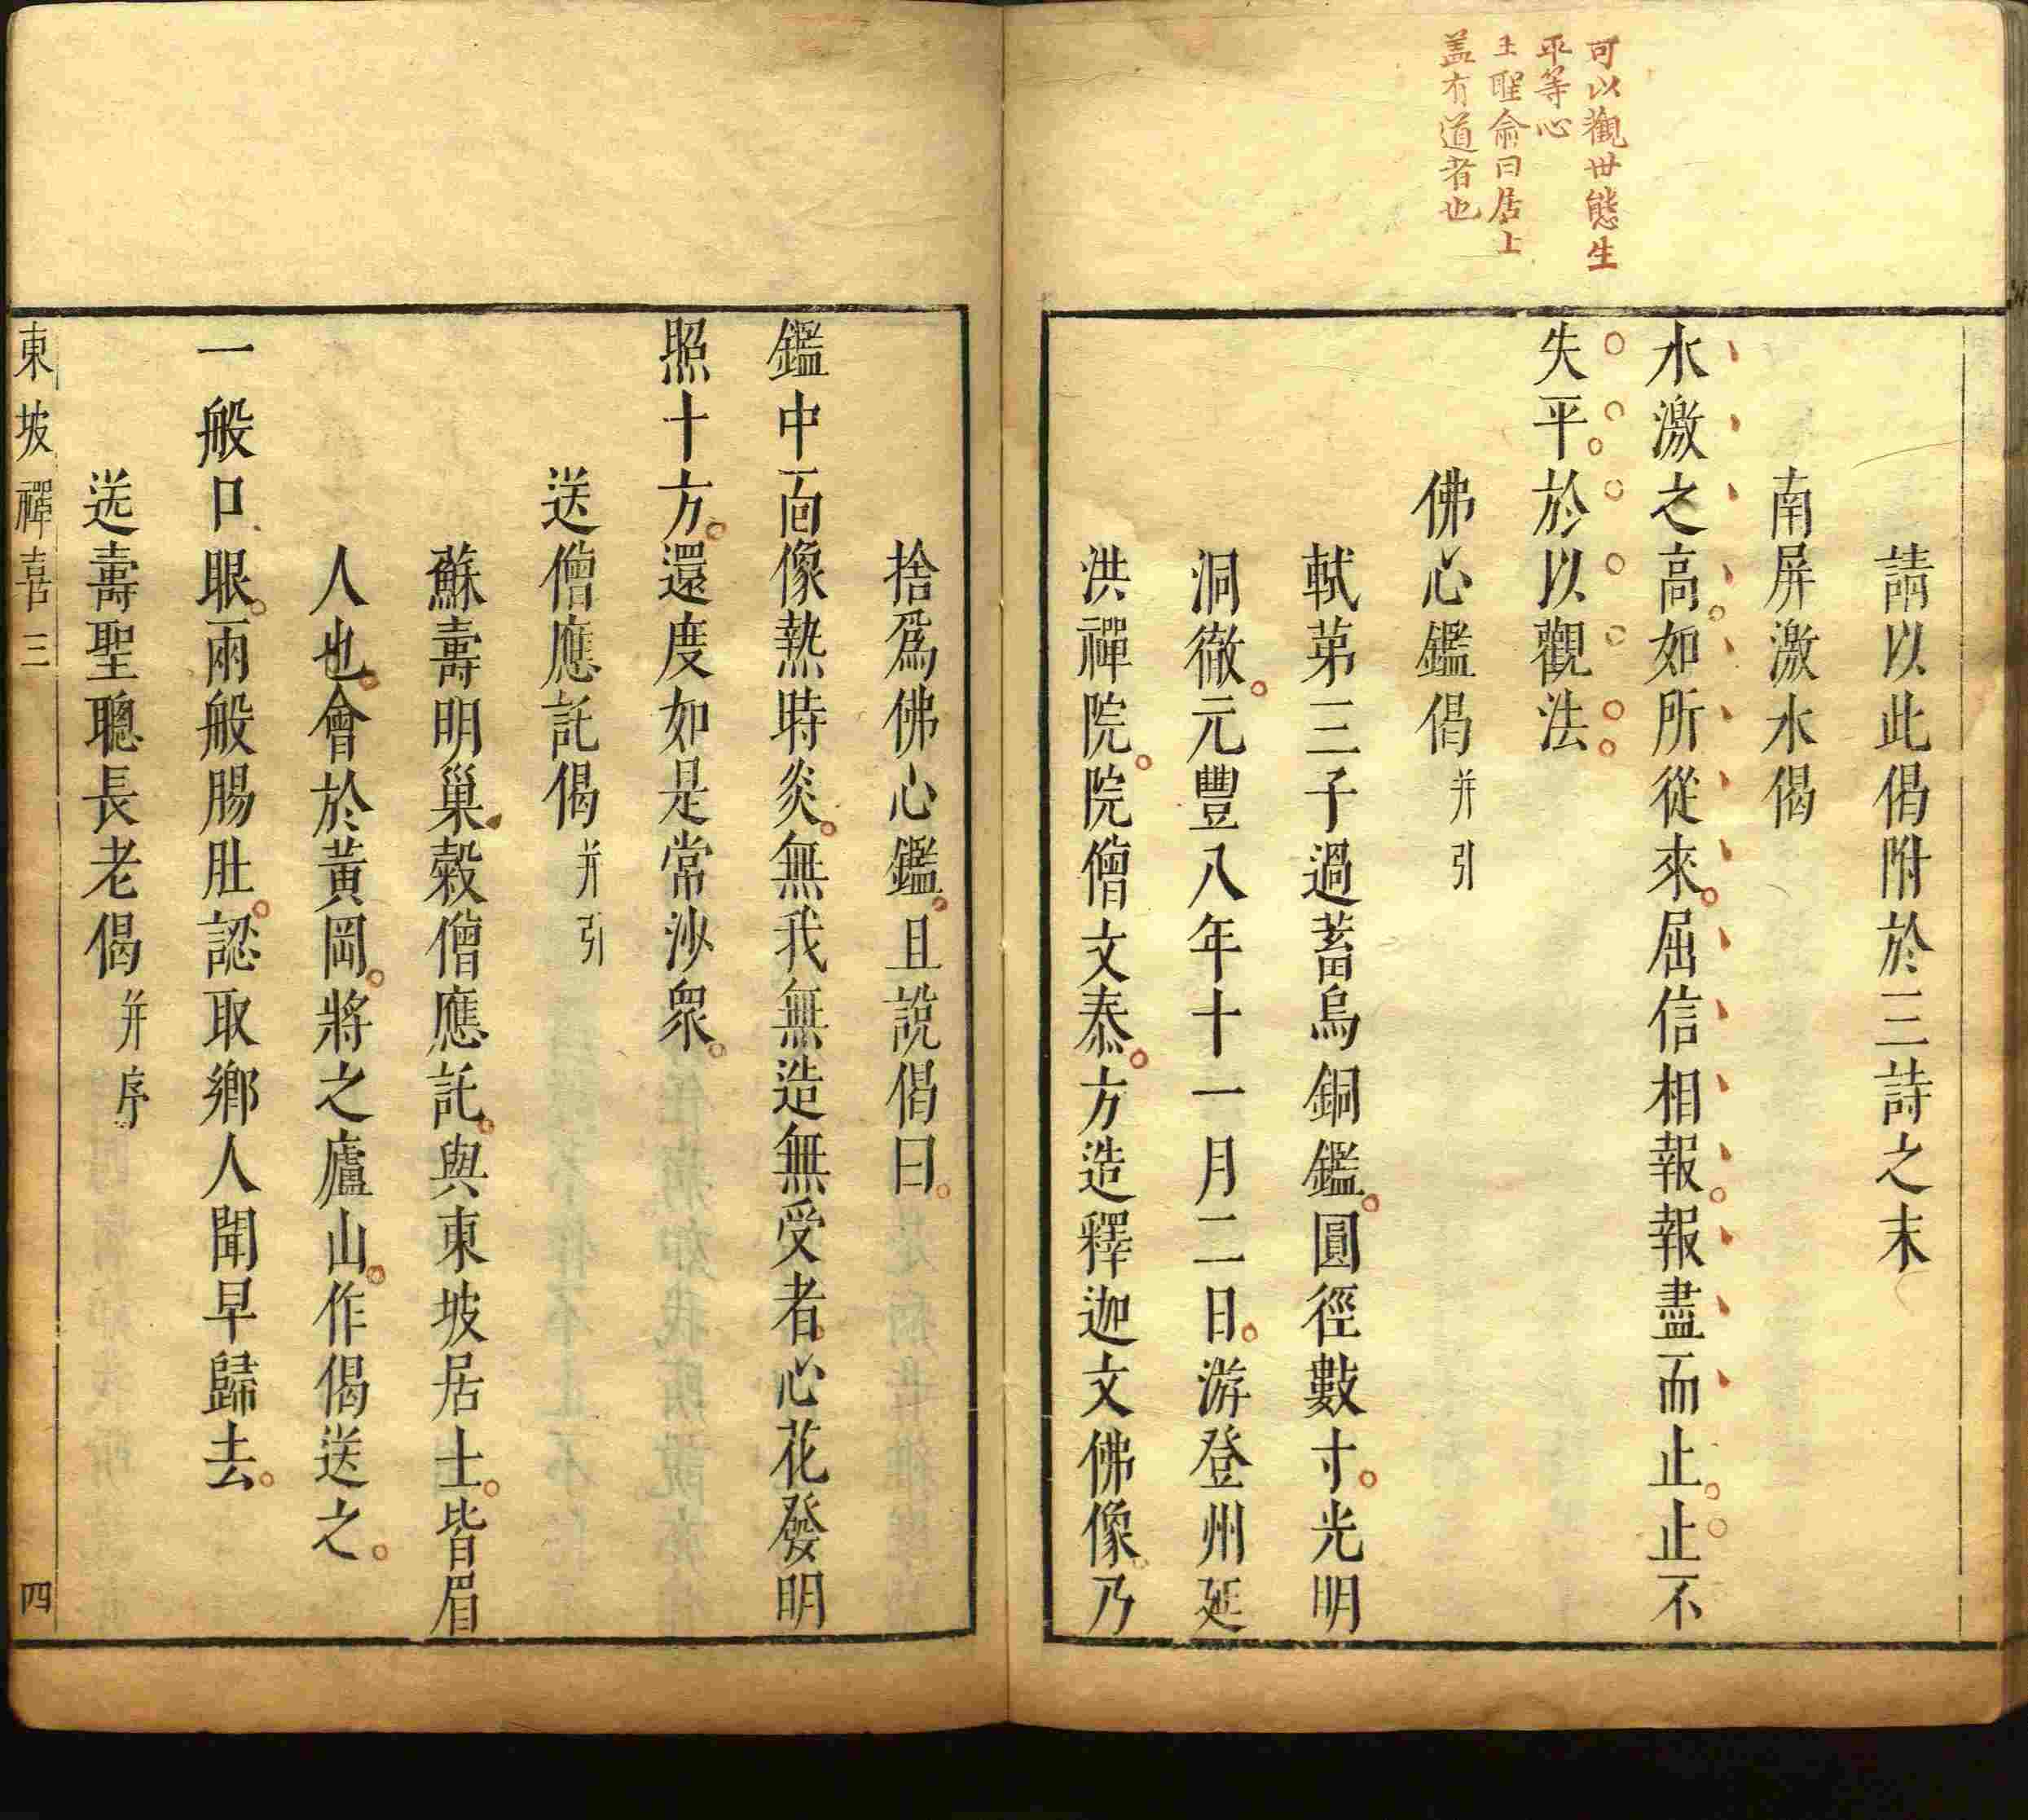 可以觀世態生
平等心
王聖俞曰居士
蓋有道者也
請以此偈附於三詩之末
南屏激水偈
水激之高如所從來屈信相報報盡而止止不
失平於以觀法
佛心鑑偈并引
軾第三子過蓄烏銅鑑圓徑數寸光明
洞徹元豐八年十一月二日游登州延
洪禪院院僧文泰方造釋迦文佛像乃
捨爲佛心鑑且說偈曰
鑑中面像熱時炎無我無造無受者心花發明
照十方還度如是常沙眾
送僧應託偈并引
蘇壽明巢榖僧應託與東坡居士皆眉
人也會於黃岡將之廬山作偈送之
一般口眼兩般腸肚認取鄉人聞早歸去
送壽聖聰長老偈并序
東坡禪喜三
四